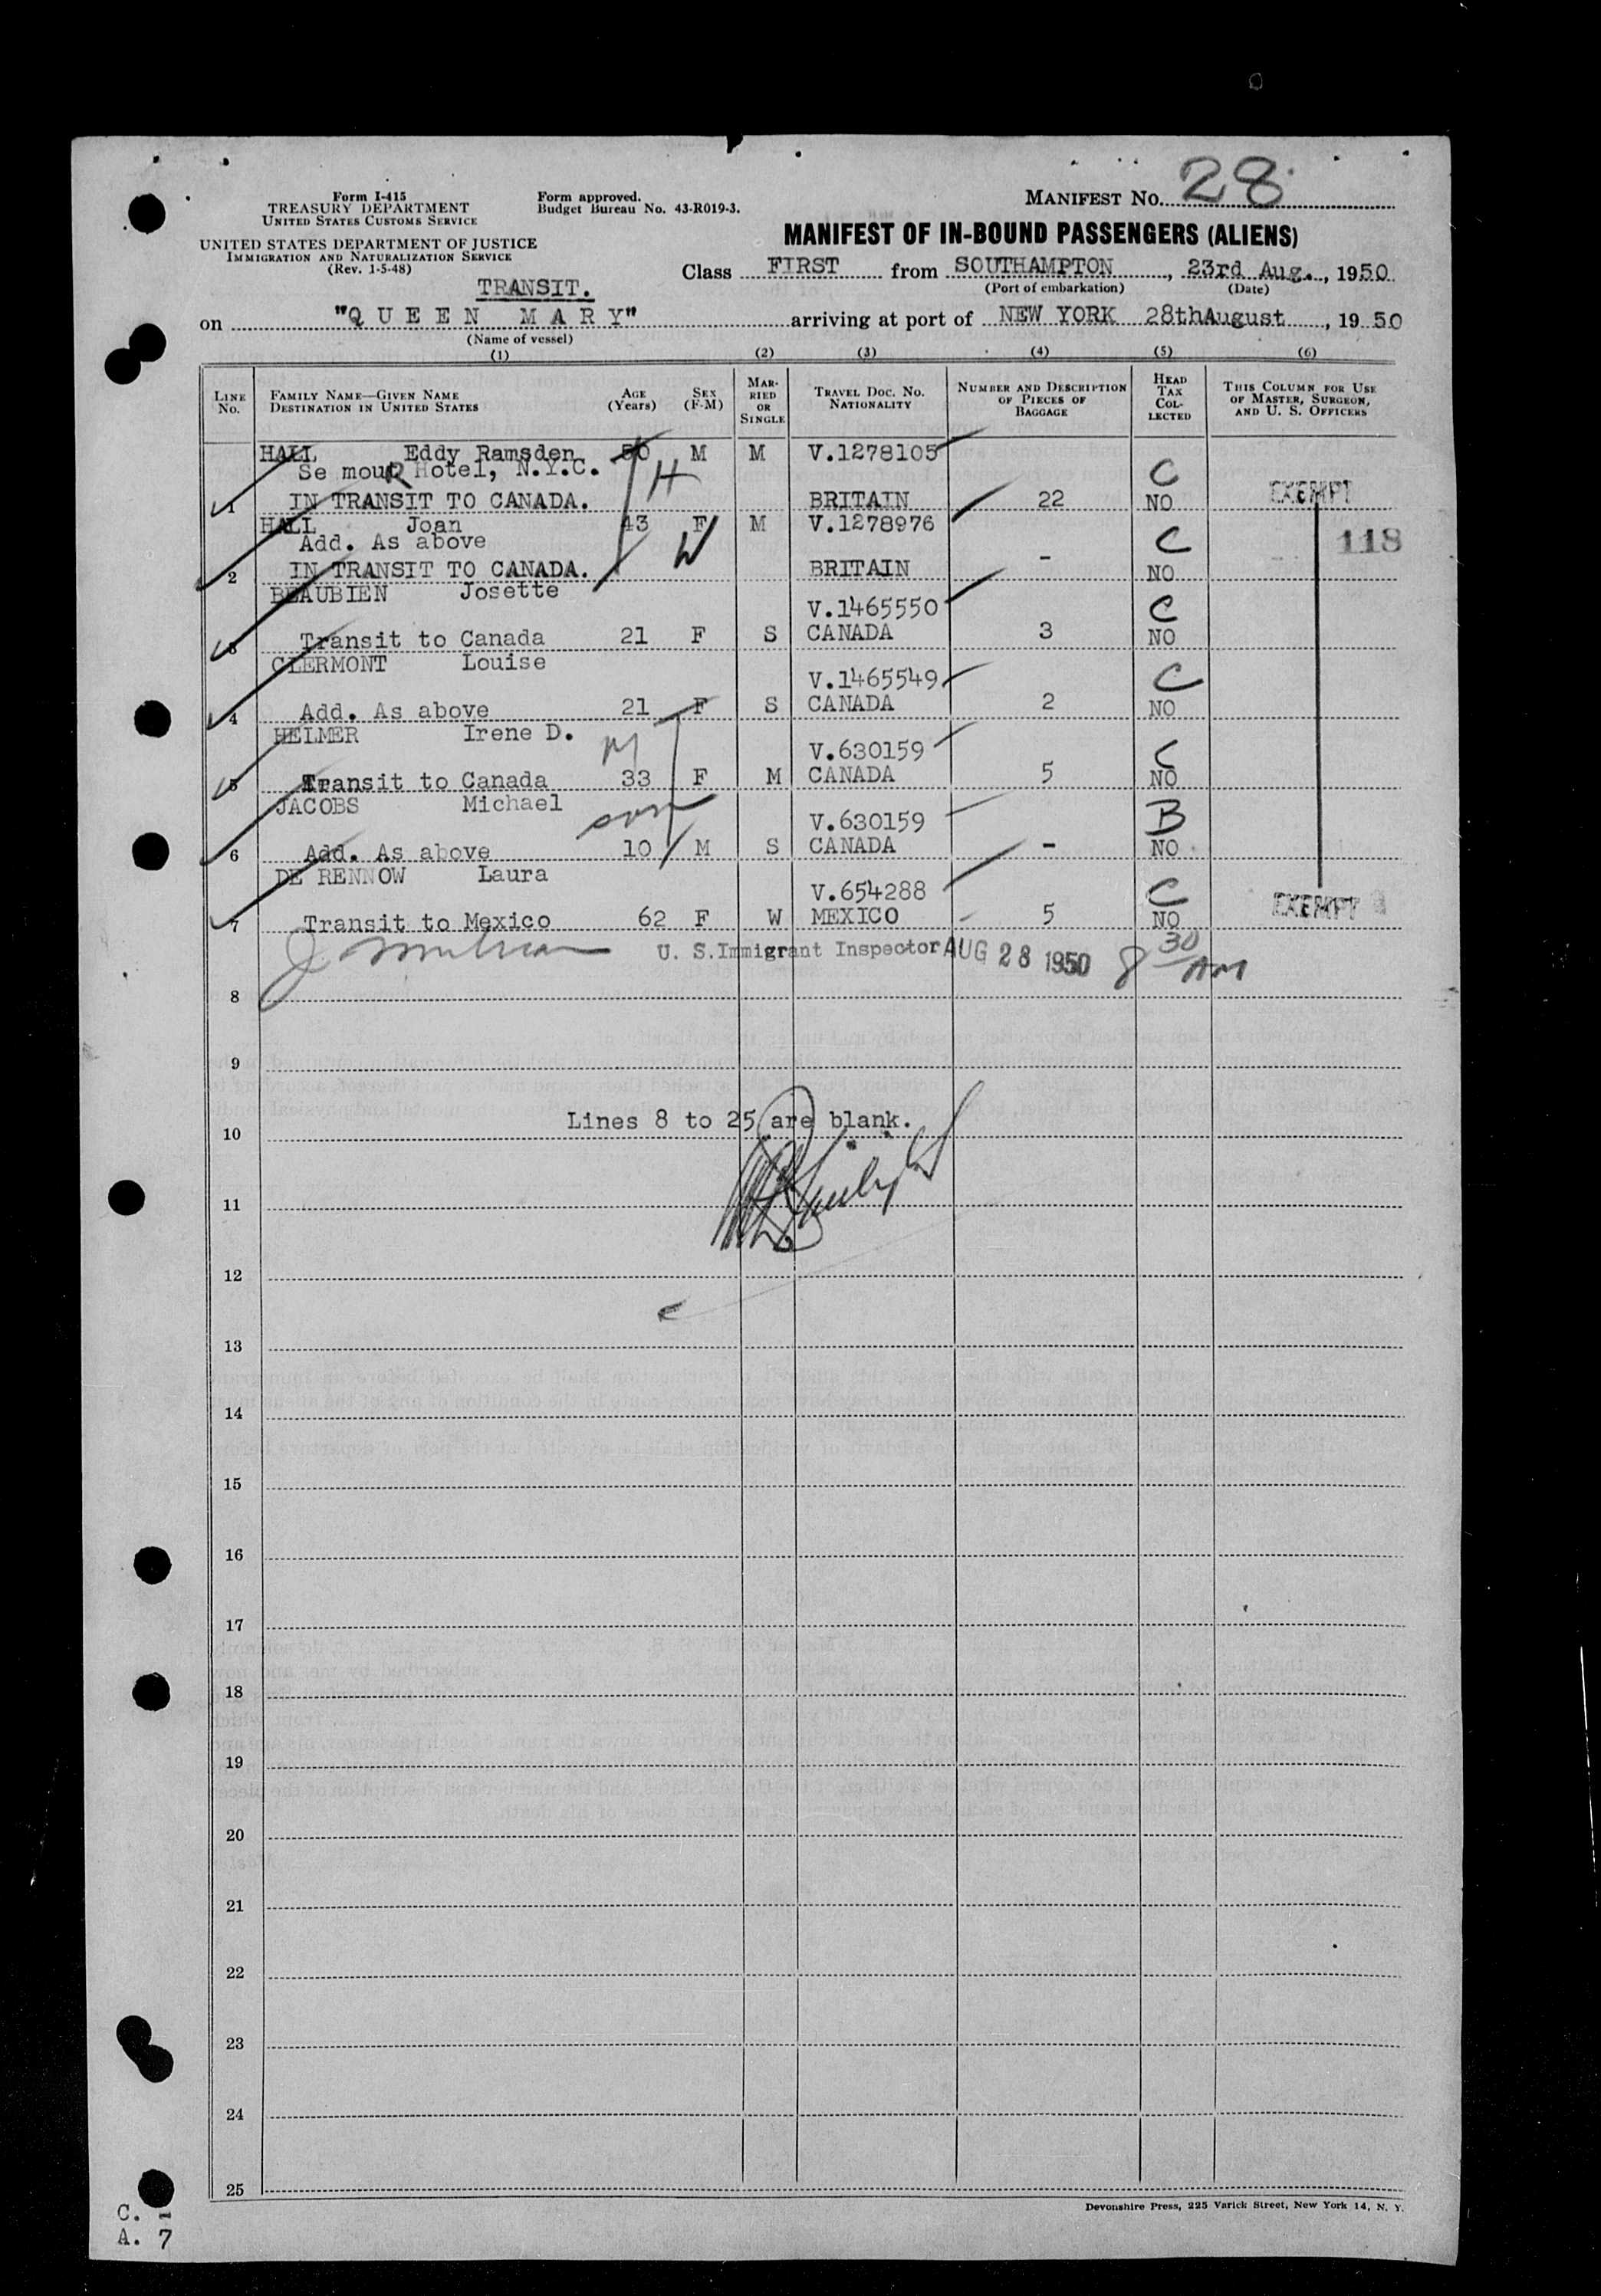 MANIFEST No. 28
Form I-415
TREASURY DEPARTMENT
UNITED STATES CUSTOMS SERVICE
Form approved.
Budget Bureau No. 43-R019-3.
UNITED STATES DEPARTMENT OF JUSTICE
IMMIGRATION AND NATURALIZATION SERVICE
(Rev. 1-5-48)
MANIFEST OF IN-BOUND PASSENGERS (ALIENS)
Class FIRST from SOUTHAMPTON, 23rd Aug., 1950
(Port of embarkation) (Date)
TRANSIT.
on "QUEEN MARY" arriving at port of NEW YORK 28thAugust, 1950
(Name of vessel)
(1) (2) (3) (4) (5) (6)
LINE No. FAMILY NAME—GIVEN NAME DESTINATION IN UNITED STATES AGE (Years) SEX (F-M) MARRIED OR SINGLE TRAVEL DOC. NO. NATIONALITY NUMBER AND DESCRIPTION OF PIECES OF BAGGAGE HEAD TAX COLLECTED THIS COLUMN FOR USE OF MASTER, SURGEON, AND U. S. OFFICERS
HALL Eddy Ramsden 50 M M V.1278105
Se mouR Hotel, N.Y.C. H C
1 IN TRANSIT TO CANADA. BRITAIN 22 NO EXEMPT
HALL Joan 43 F M V.1278976
Add. As above W C 118
2 IN TRANSIT TO CANADA. BRITAIN - NO
BEAUBIEN Josette
V.1465550 C
3 Transit to Canada 21 F S CANADA 3 NO
CLERMONT Louise
V.1465549 C
4 Add. As above 21 F S CANADA 2 NO
HELMER Irene D.
M V.630159 C
5 Transit to Canada 33 F M CANADA 5 NO
JACOBS Michael
son V.630159 B
6 Add. As above 10 M S CANADA - NO
DE RENNOW Laura
V.654288 C
7 Transit to Mexico 62 F W MEXICO 5 NO EXEMPT
U. S. Immigrant Inspector AUG 28 1950 8 30 AM
8
9
10 Lines 8 to 25 are blank.
11
12
13
14
15
16
17
18
19
20
21
22
23
24
25
Devonshire Press, 225 Varick Street, New York 14, N. Y.
C. 1
A. 7